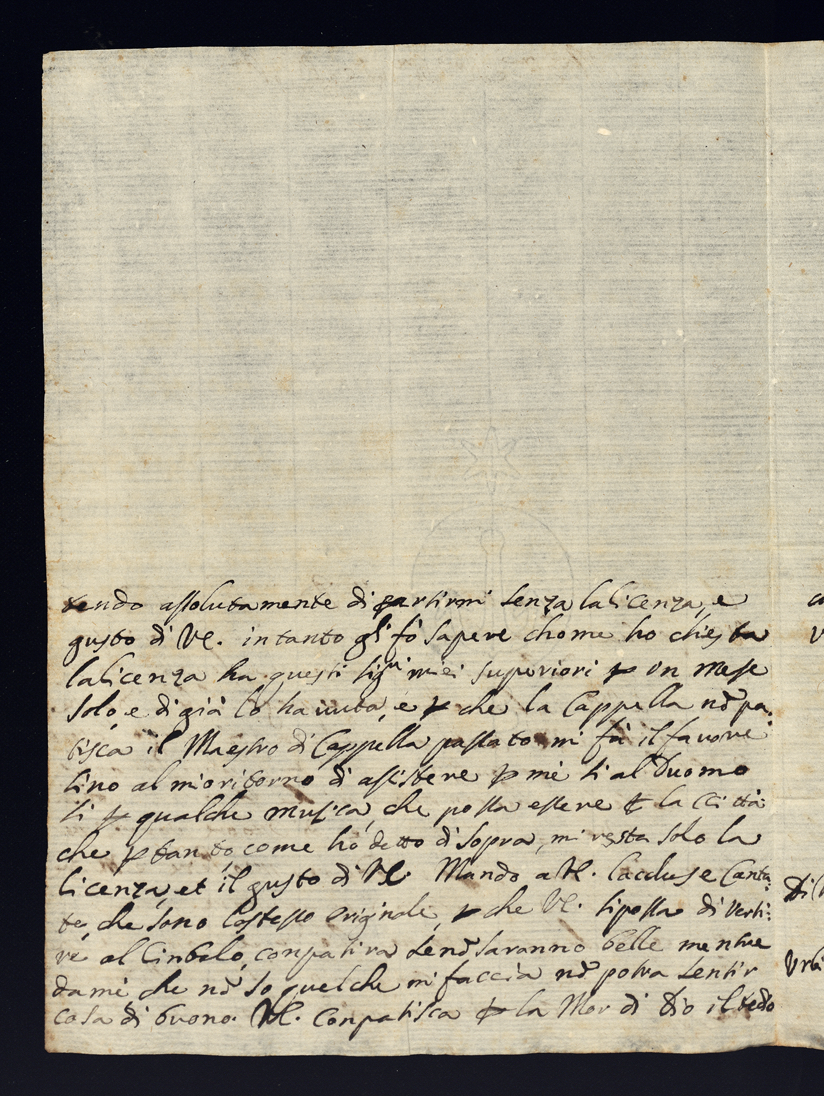 tendo assolutamente di partirmi senza la licenza, e
gusto di VS. intanto gli fò sapere chome ho chiesta
la licenza ha questi sigri miei superiori p un mese
solo, e di già lò hauuta, e p che la Cappella nõ pa:
tisca il Maestro di Cappella passato mi fà il favore
sino al mio ritorno di assistere p mè si al Duomo
si p qualche musica, che possa essere p la Città:
che p tanto, come hò detto di sopra, mi resta solo la
licenza, et il gusto di VS. Mando a VS. l'accluse Canta:
te, che sono l'astesso originale, p che VS. si possa diverti:
re al Cinbalo, conpatira se nõ saranno belle mentre
da mè, che nõ so quel che mi faccia nõ potra sentir
cosa di buono. VS. Conpatisca p la Mor di Dio il tedio